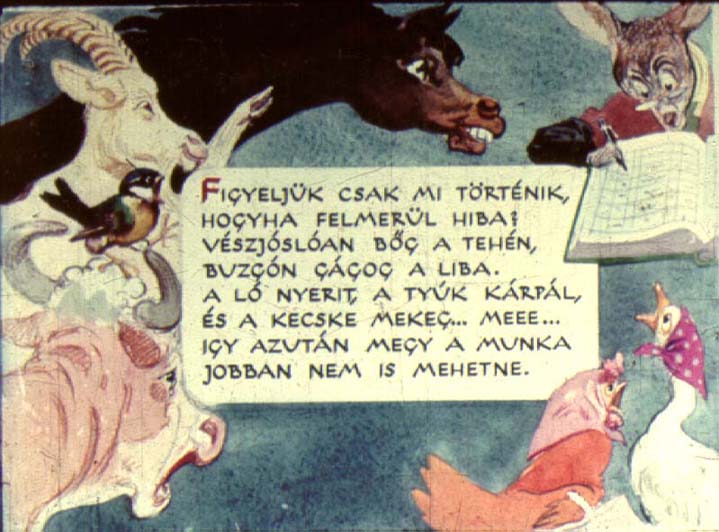 FIGYELJÜK CSAK MI TÖRTÉNIK,
HOGYHA FELMERÜL HIBA;
VÉSZJÓSLÓAN BŐG A TEHÉN,
BUZGÓN GÁGOG A LIBA.
A LÓ NYERIT, A TYÚK KÁRPÁL,
ÉS A KECSKE MEKEG... MEEE...
IGY AZUTÁN MEGY A MUNKA
JOBBAN NEM IS MEHETNE.